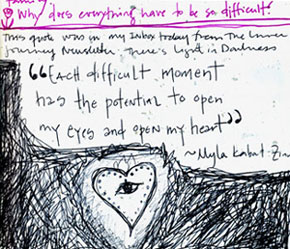 Why does everything have to be so difficult?
This quote was in my Inbox today from The Inner
Journey Newsletter There's Light in Darkness
"Each difficult moment
has the potential to open
my eyes and open my heart"
~Myla Kabat-Zin